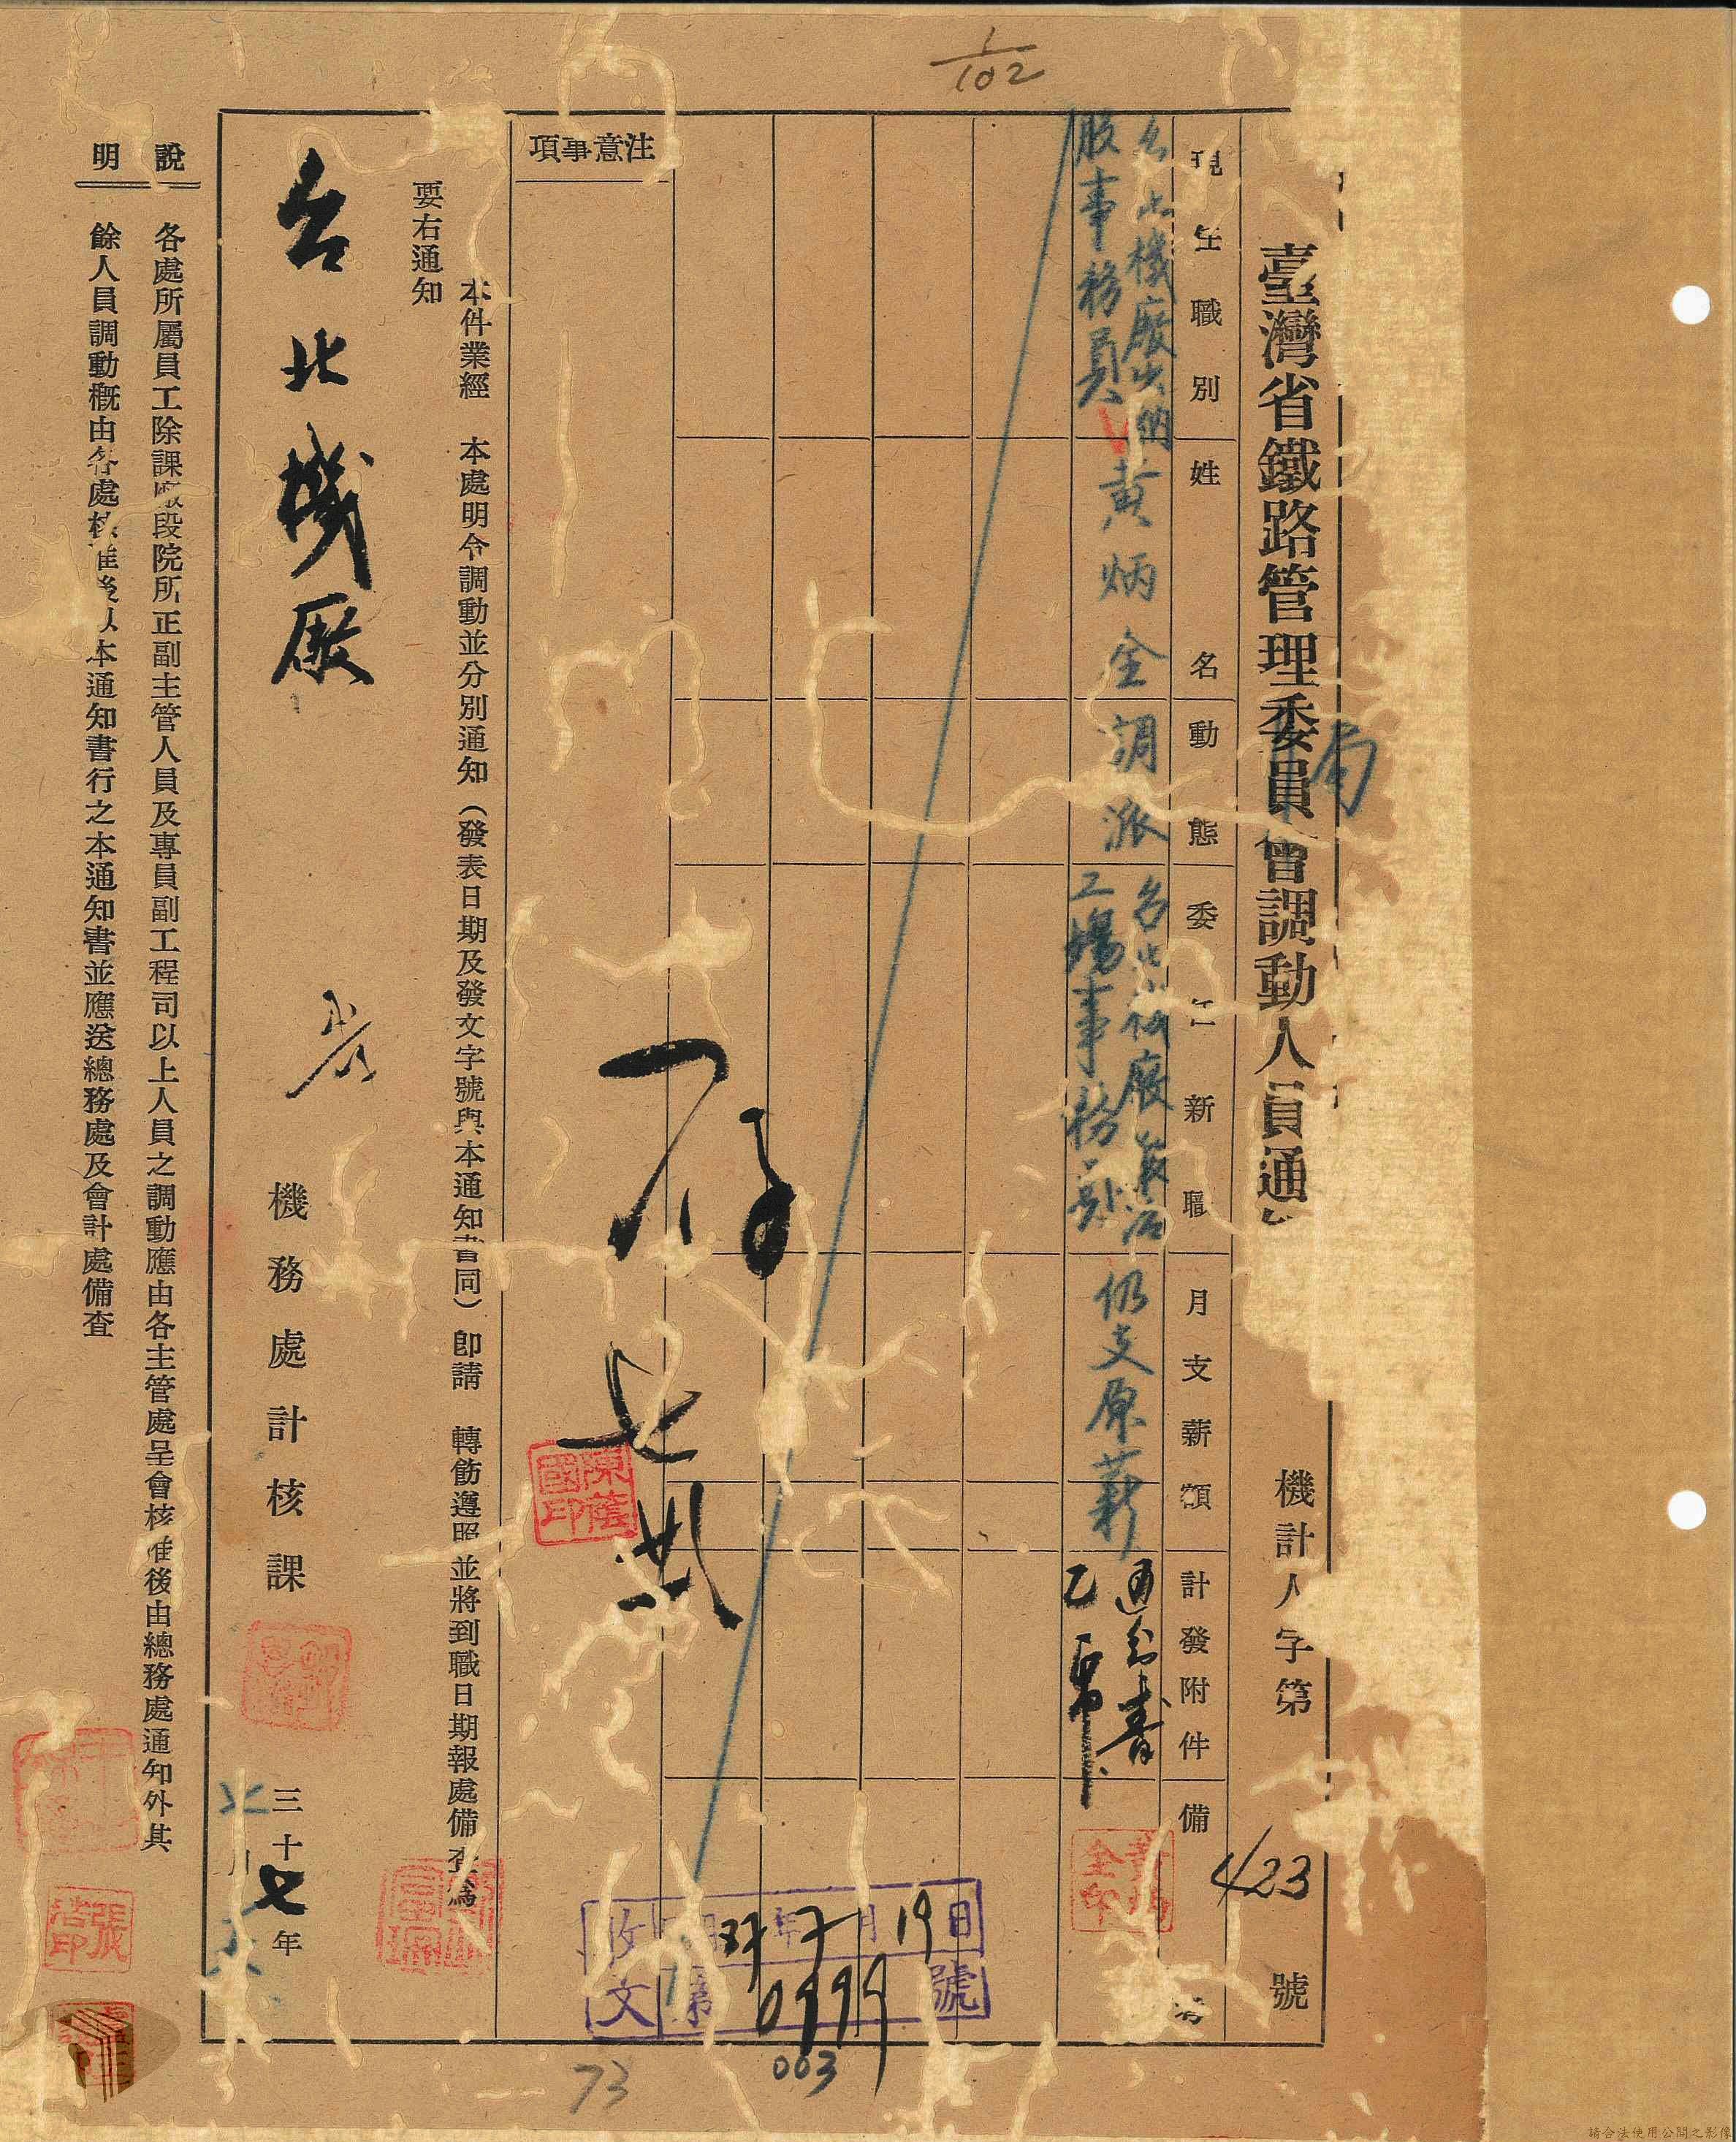 1/102
臺灣省鐵路管理委員會調動人員通
局
機計人字第423號
現任職別
姓名
動態
委任新職
月支薪額
計發附件
備
台北機廠出納
股事務員
黃炳金
調派
台北機廠
工場事務
仍支原薪
通知書
乙
注意事項
存
七
本件業經 本處明令調動並分別通知（發表日期及發文字號與本通知書同）卽請 轉飭遵照並將到職日期報處備查爲
要右通知
台北機廠
機務處計核課
三十七年
月
說明
各處所屬員工除課廠段院所正副主管人員及專員副工程司以上人員之調動應由各主管處呈會核准後由總務處通知外其
餘人員調動槪由各處核准後以本通知書行之本通知書並應送總務處及會計處備查
陳蔭國印
黃炳金印
收文
37年7月19日
第0999號
003
73
請合法使用公開之影像